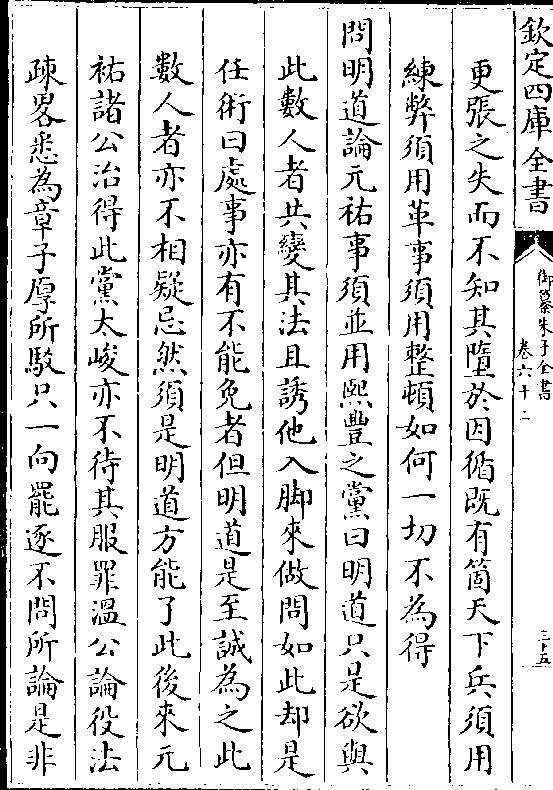 欽定四庫全書
御纂朱子全書
卷六十二
三十五
更張之失而不知其墮於因循既有箇天下兵須用
練弊須用革事須用整頓如何一切不為得
問明道論元祐事須並用熙豐之黨曰明道只是欲與
此數人者共變其法且誘他入脚來做問如此却是
任術曰處事亦有不能免者但明道是至誠為之此
數人者亦不相疑忌然須是明道方能了此後來元
祐諸公治得此黨太峻亦不待其服罪溫公論役法
疎畧悉為章子厚所駮只一向罷逐不問所論是非